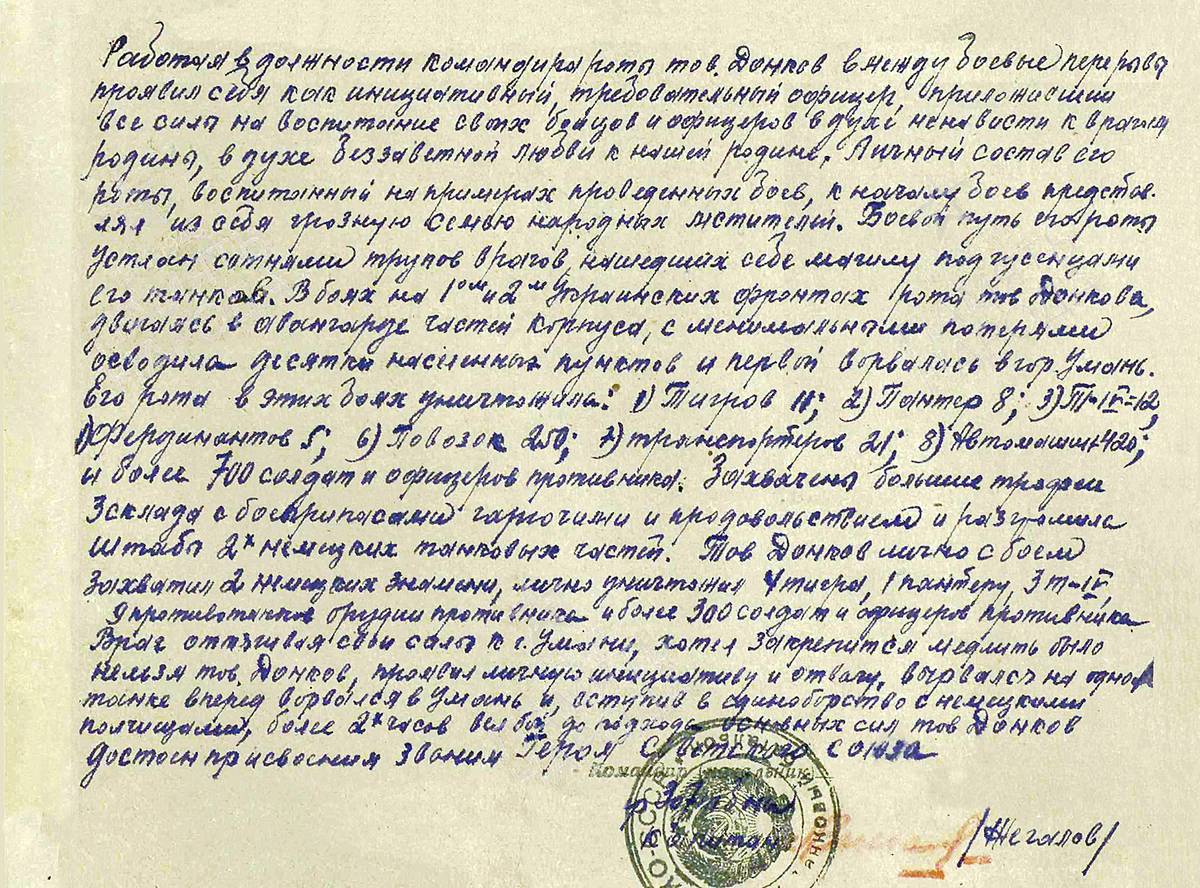 Работая в должности командира роты тов. Донков в между боевые перерывы
проявил себя как инициативный, требовательный офицер, приложивший
все силы на воспитание своих бойцов и офицеров в духе ненависти к врагам
родины, в духе беззаветной любви к нашей родине. Личный состав его
роты, воспитанный на примерах проведенных боев, к началу боев представ-
лял из себя грозную семью народных мстителей. Боевой путь его роты
устлан сотнями трупов врагов, нашедших себе магилу под гусеницами
его танков. В боях на 1ом и 2м Украинских фронтах рота тов Донкова,
двигаясь в авангарде частей корпуса, с менимальными потерями
осводила десятки населенных пунктов и первой ворвалась в гор Умань.
Его рота в этих боях уничтожила: 1) Тигров 11; 2) Пантер 8; 3) Т-IV=12,
Фердинантов 5; 6) Повозок 250; 7) транспортеров 21; 8) Автомашин 420;
и более 700 солдат и офицеров противника. Захвачены большие трофеи
3 склада с боеприпасами горючими и продовольствием и разгромила
штабы 2х немецких танковых частей. Тов Донков лично с боем
захватил 2 немецких знамени, лично уничтожил 4 тигра, 1 пантеру, 3 т-IV,
9 противотанков орудии противника и более 300 солдат и офицеров противника
Враг оттягивая свои силы к г. Умани, хотел закрепится медлить было
нельзя тов. Донков, проявил личную инициативу и отвагу, вырвалсъ на одном
танке вперед ворвался в Умань и, вступив в единоборство с немецкими
полчищами, более 2х часов вел бой до подхода основных сил тов Донков
достоин присвоения звания Героя Советского союза
Командир (начальник)
/Жегалов/